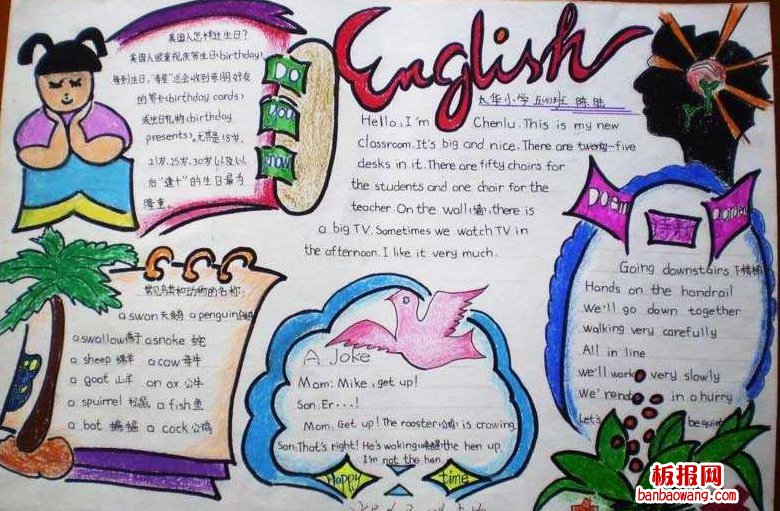 English
太华小学
美国人怎样过生日?
美国人很重视庆祝生日(birthday),
每到生日,"寿星"还会收到亲朋好友
的贺卡(birthday cards)
或生日礼物(birthday
presents)。尤其是18岁、
21岁、25岁、30岁以及以
后"逢十"的生日最为
隆重。
DO
you
know
Hello, I'm Chenlu. This is my new
classroom. It's big and nice. There are twenty-five
desks in it. There are fifty chairs for
the students and one chair for the
teacher. On the wall(墙), there is
a big TV. Sometimes we watch TV in
the afternoon. I like it very much.
常见鸟类和动物的名称:
a swan 天鹅 a penguin 企鹅
a swallow 燕子 a snake 蛇
a sheep 绵羊 a cow 母牛
a goat 山羊 an ox 公牛
a spuirrel 松鼠 a fish 鱼
a bat 蝙蝠 a cock 公鸡
A Joke
Mom: Mike, get up!
Son: Er---!
Mom: Get up! The rooster(公鸡) is crowing.
Son: That's right! He's waking(唤醒) the hen up.
I'm not the hen.
Happy time
Going downstairs 下楼梯
Hands on the handrail
We'll go down together
walking very carefully
All in line
we'll work very slowly
We're not in a hurry
Let's be quiet
板报网
banbaowang.com